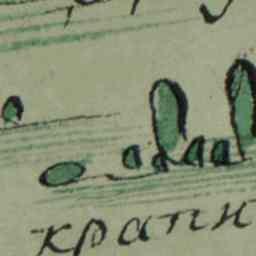 крапи